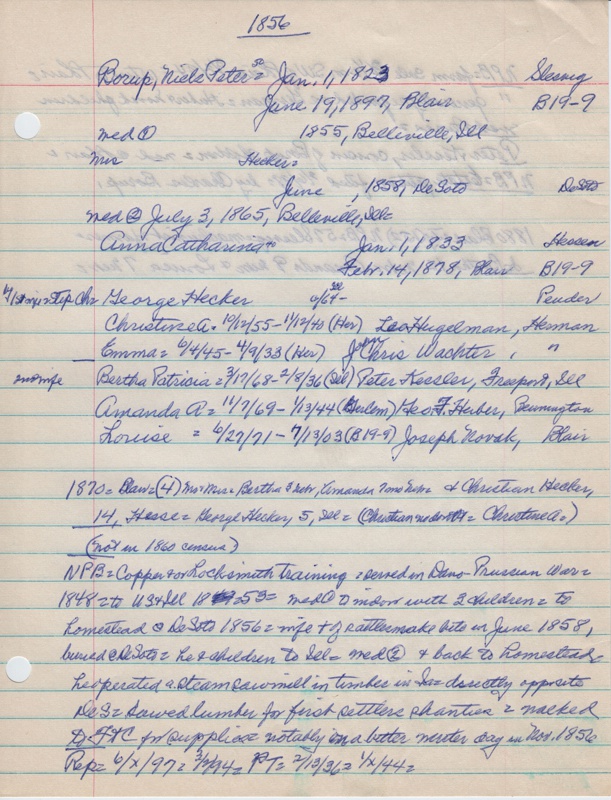 1856
Borup, Niels Peter = Jan. 1, 1823 Slesvig
June 19, 1897, Blair B19-9
med ① 1855, Belleville, Ill
Mrs Hecker =
June , 1858, DeSoto DeSoto
med ② July 3, 1865, Belleville, Ill =
Anna Catharina Jan. 1, 1833 Hessen
Febr. 14, 1878, Blair B19-9
Step Ch = George Hecker 6/64- Pender
Christine A. 10/12/55 - 11/12/43 (Her) Leo Hugelman, Herman
Emma = 6/4/45 - 4/9/33 (Her) John Chris Wachter, "
Bertha Patricia = 3/17/68 - 2/8/36 (Ill) Peter Kessler, Freeport, Ill
Amanda A = 11/7/69 - 1/13/44 (Harlem) Geo. F. Heiber, Bennington
Louise = 6/27/71 - 7/13/03 (B19-9) Joseph Novak, Blair
1870 = Blair = (4) Mr & Mrs = Bertha 3 Nebr, Amanda 7mo Nebr = & Christian Hecker,
14, Hesse = George Hecker, 5, Ill = (Christian = Christine A =)
(not in 1860 census)
NPB = Copper & or Locksmith training = served in Dano-Prussian War =
1848 = to US & Ill 53 = med ① widow with 2 children = to
homestead @ DeSoto 1856 = wife + of rattlesnake bite in June 1858,
buried @ DeSoto = he & children to Ill = med ② & back to homestead =
he operated a steam sawmill in timber in Ia = directly opposite
DeS = sawed lumber for first settlers shanties = walked
to Ft C for supplies = notably on a bitter winter day in Nov. 1856
Rep = 6/x/97 = 3/2/94 = PT = 2/13/36 = 1/x/44 =